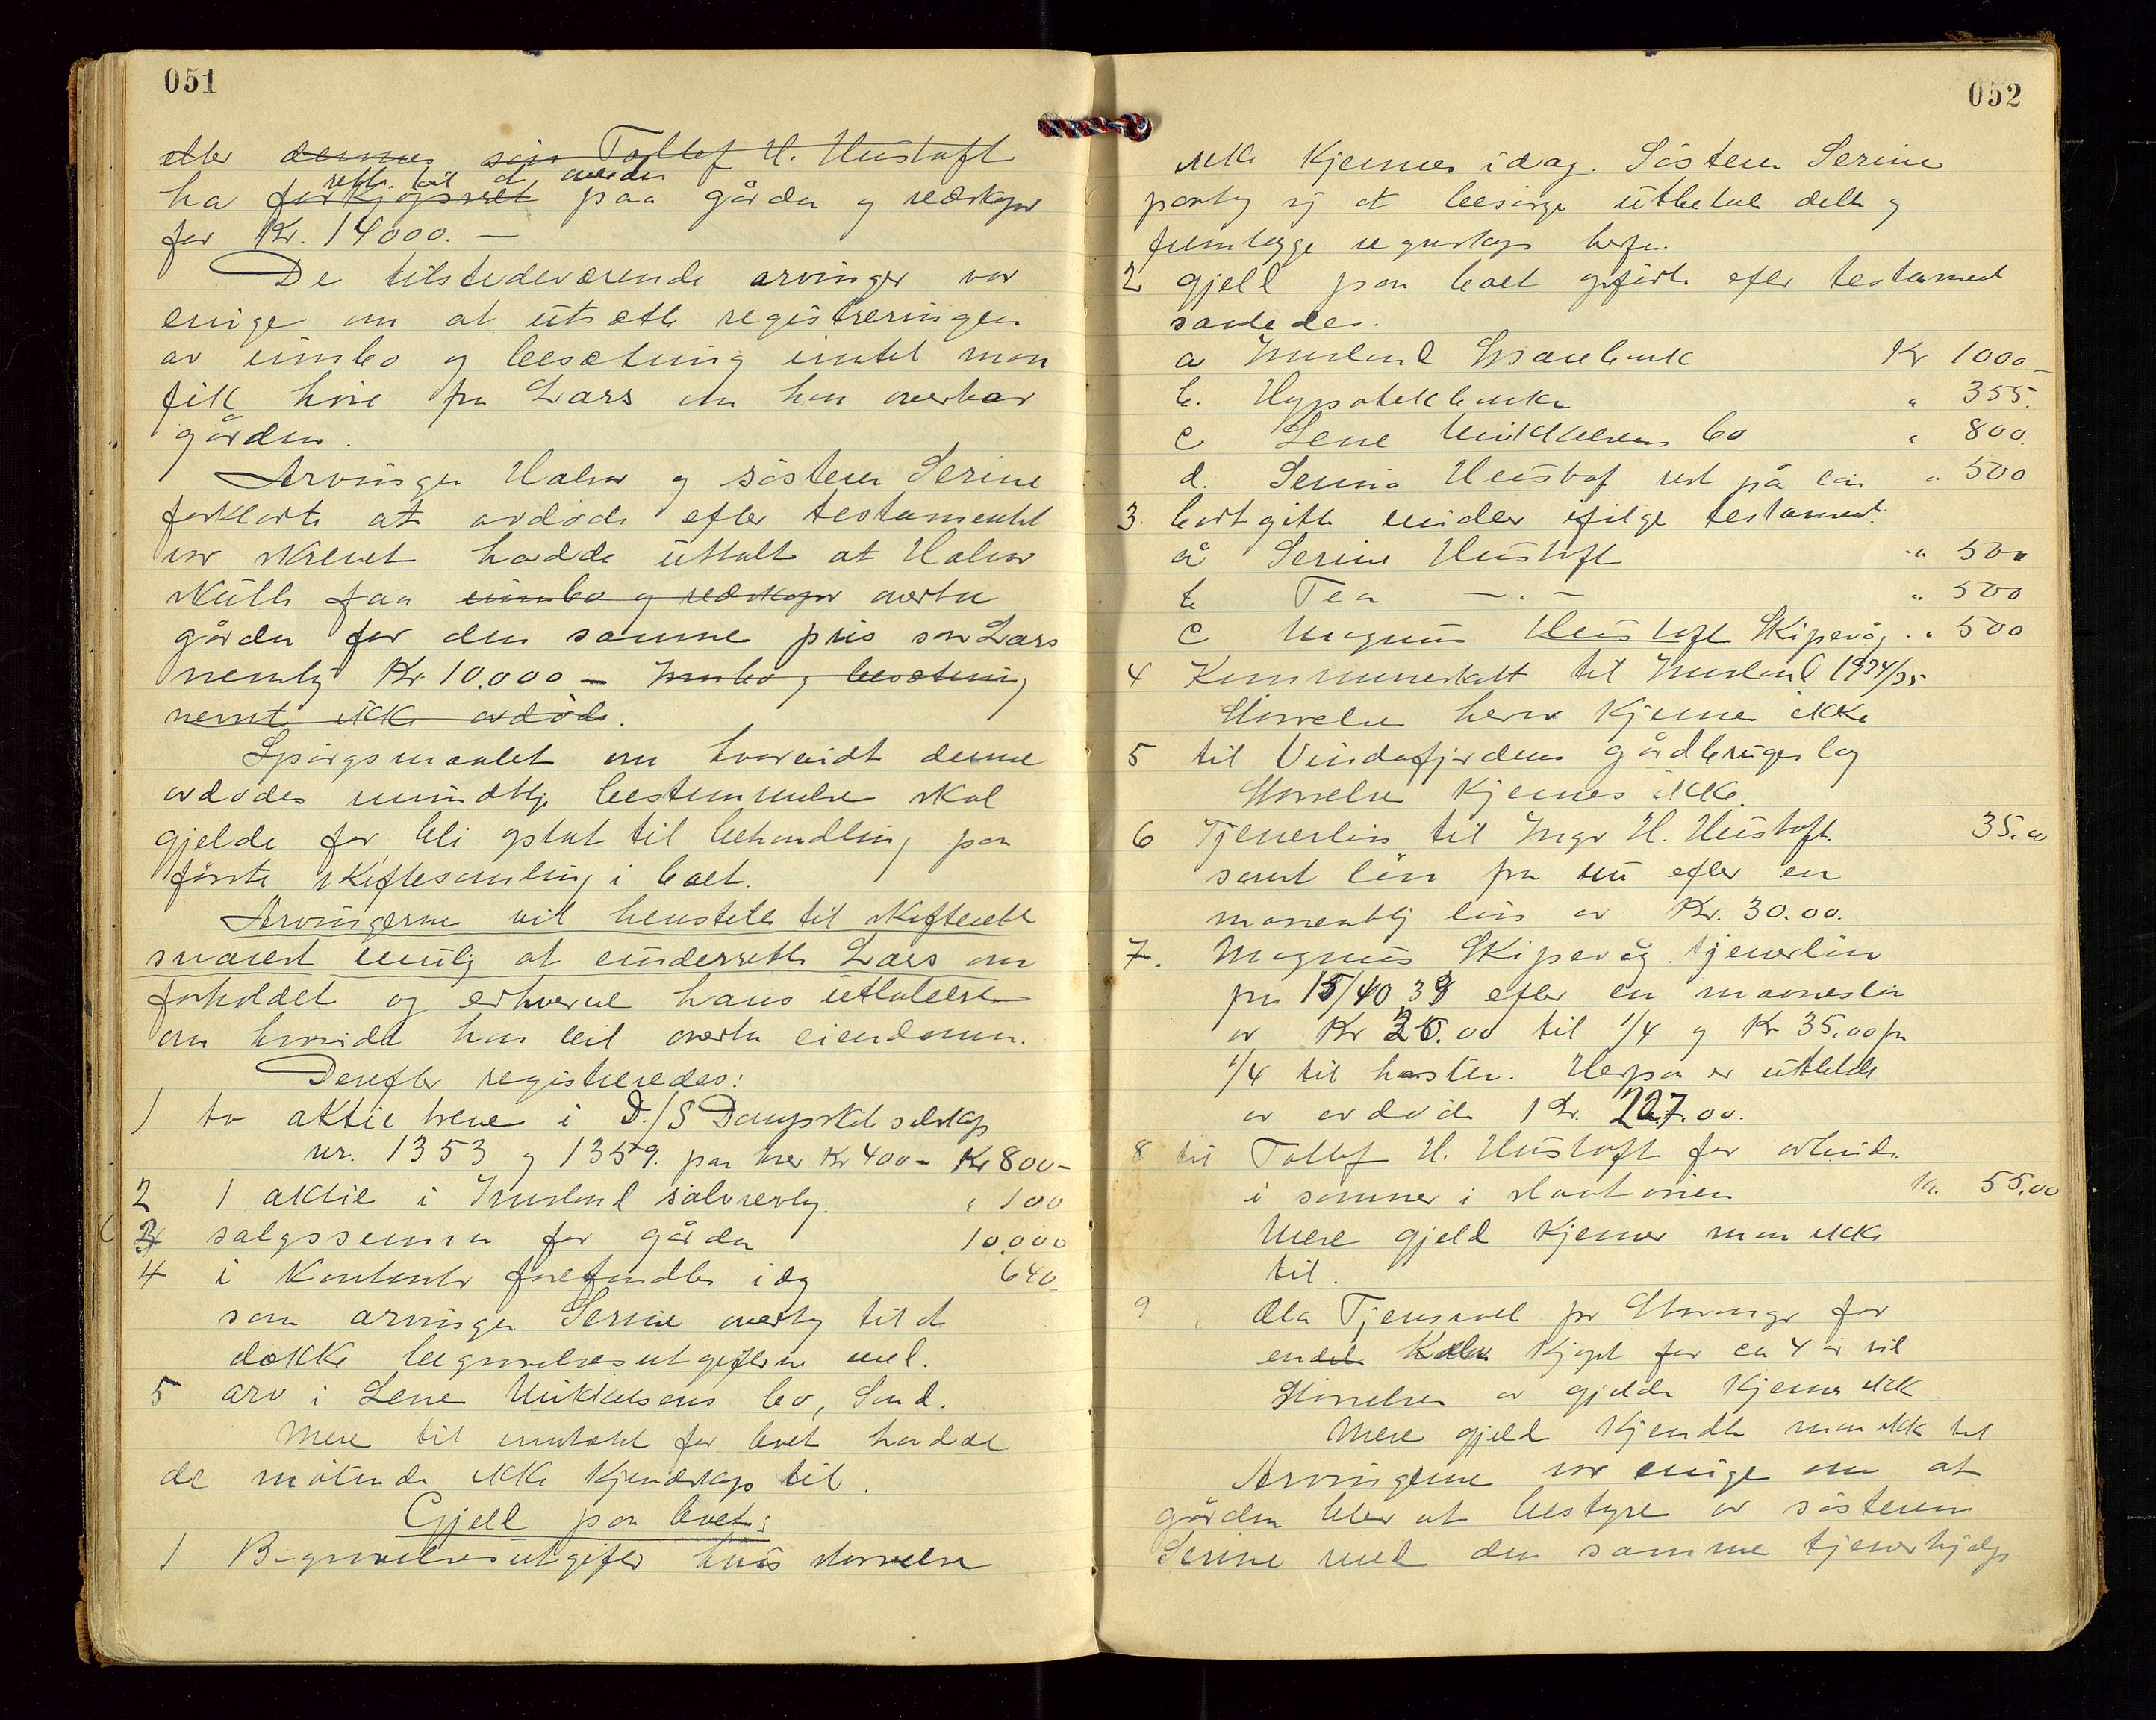 051
eller dennes søn Tollef H. Hustoft
rett til å overta
ha forkjøpsret paa gården og redskaper
for Kr. 14000.—
De tilstedeværende arvinger var
enige om at utsætte registreringen
av innbo og besætning inntil man
fik høre fra Lars om han overtar
gården.
Arvingen Halvor og søsteren Serine
forklarte at avdøde efter testamentet
var skrevet hadde uttalt at Halvor
skulle faa innbo og redskaper overta
gården for den samme pris som Lars
nemlig Kr. 10.000 — Innbo og besetning
nevnte ikke avdøde.
Spørgsmaalet om hvorvidt denne
avdødes mundtlige bestemmelse skal
gjelde for bli optat til behandling paa
første skiftesamling i boet.
Arvingerne vil henstille til skifteretten
snarest mulig at underrette Lars om
forholdet og erhverve hans uttalelse
om hvorvidt han vil overta eiendommen.
Derefter registreredes:
1 to aktiebrever i D./S Dampskibsselskap
nr. 1353 og 1359. paa hver Kr 400 - Kr 800 -
2 1 aktie i Imsland sølvrevlag. " 100
3 salgssummen for gården 10.000
4 i Kontanter forefindtes idag 640.
som arvingen Serine overtog til at
dække begravelsesutgifterne med.
5 arv i Lene Mikkelsens bo, Sand.
Mere til inntækt for boet hadde
de møtende ikke kjendskap til.
Gjeld paa boet:
1 Begravelsesutgifter hvis størrelse
052
ikke kjennes idag. Søsteren Serine
paatog sig at besørge utbetalt dette og
fremlægge regnskap herfor.
2 gjeld paa boet opført efter testament
saaledes.
a Imsland Sparebank Kr 1000 -
b. Hypotekbanken " 355.
c Lene Mikkelsens bo " 800.
d. Serine Hustoft rest på lån " 500
3. bortgitte midler ifølge testament:
a Serine Hustoft " 500
b Tea — " — " 500
c Magnus Hustoft Skipevåg " 500
4 Kommuneskatt til Imsland 1934/35
Størrelsen herav kjennes ikke
5 til Vindafjordens gårdbrugerlag
Størrelsen kjennes ikke.
6 Tjenerløn til Inga H. Hustoft 35.00
samt løn fra nu efter en
maanentlig løn av Kr. 30.00.
7. Magnus Skipevåg tjenerløn
fra 15/10 38 efter en maanesløn
av Kr 25.00 til 1/4 og Kr 35.00 fra
1/4 til høsten. Herpaa er utbetalt
av avdøde Kr. 227.00.
8 til Tollef H. Hustoft for arbeide
i sommer i slaatonnen Kr. 55.00
Mere gjeld kjenner man ikke
til.
9 Ola Tjensvoll pr Stavanger for
endel Kalv kjøpt for ca 4 år sid
Størrelsen av gjelden kjennes ikke
Mere gjeld kjendte man ikke til
Arvingerne var enige om at
gården blev at bestyre av søsteren
Serine med den samme tjenerhjelp